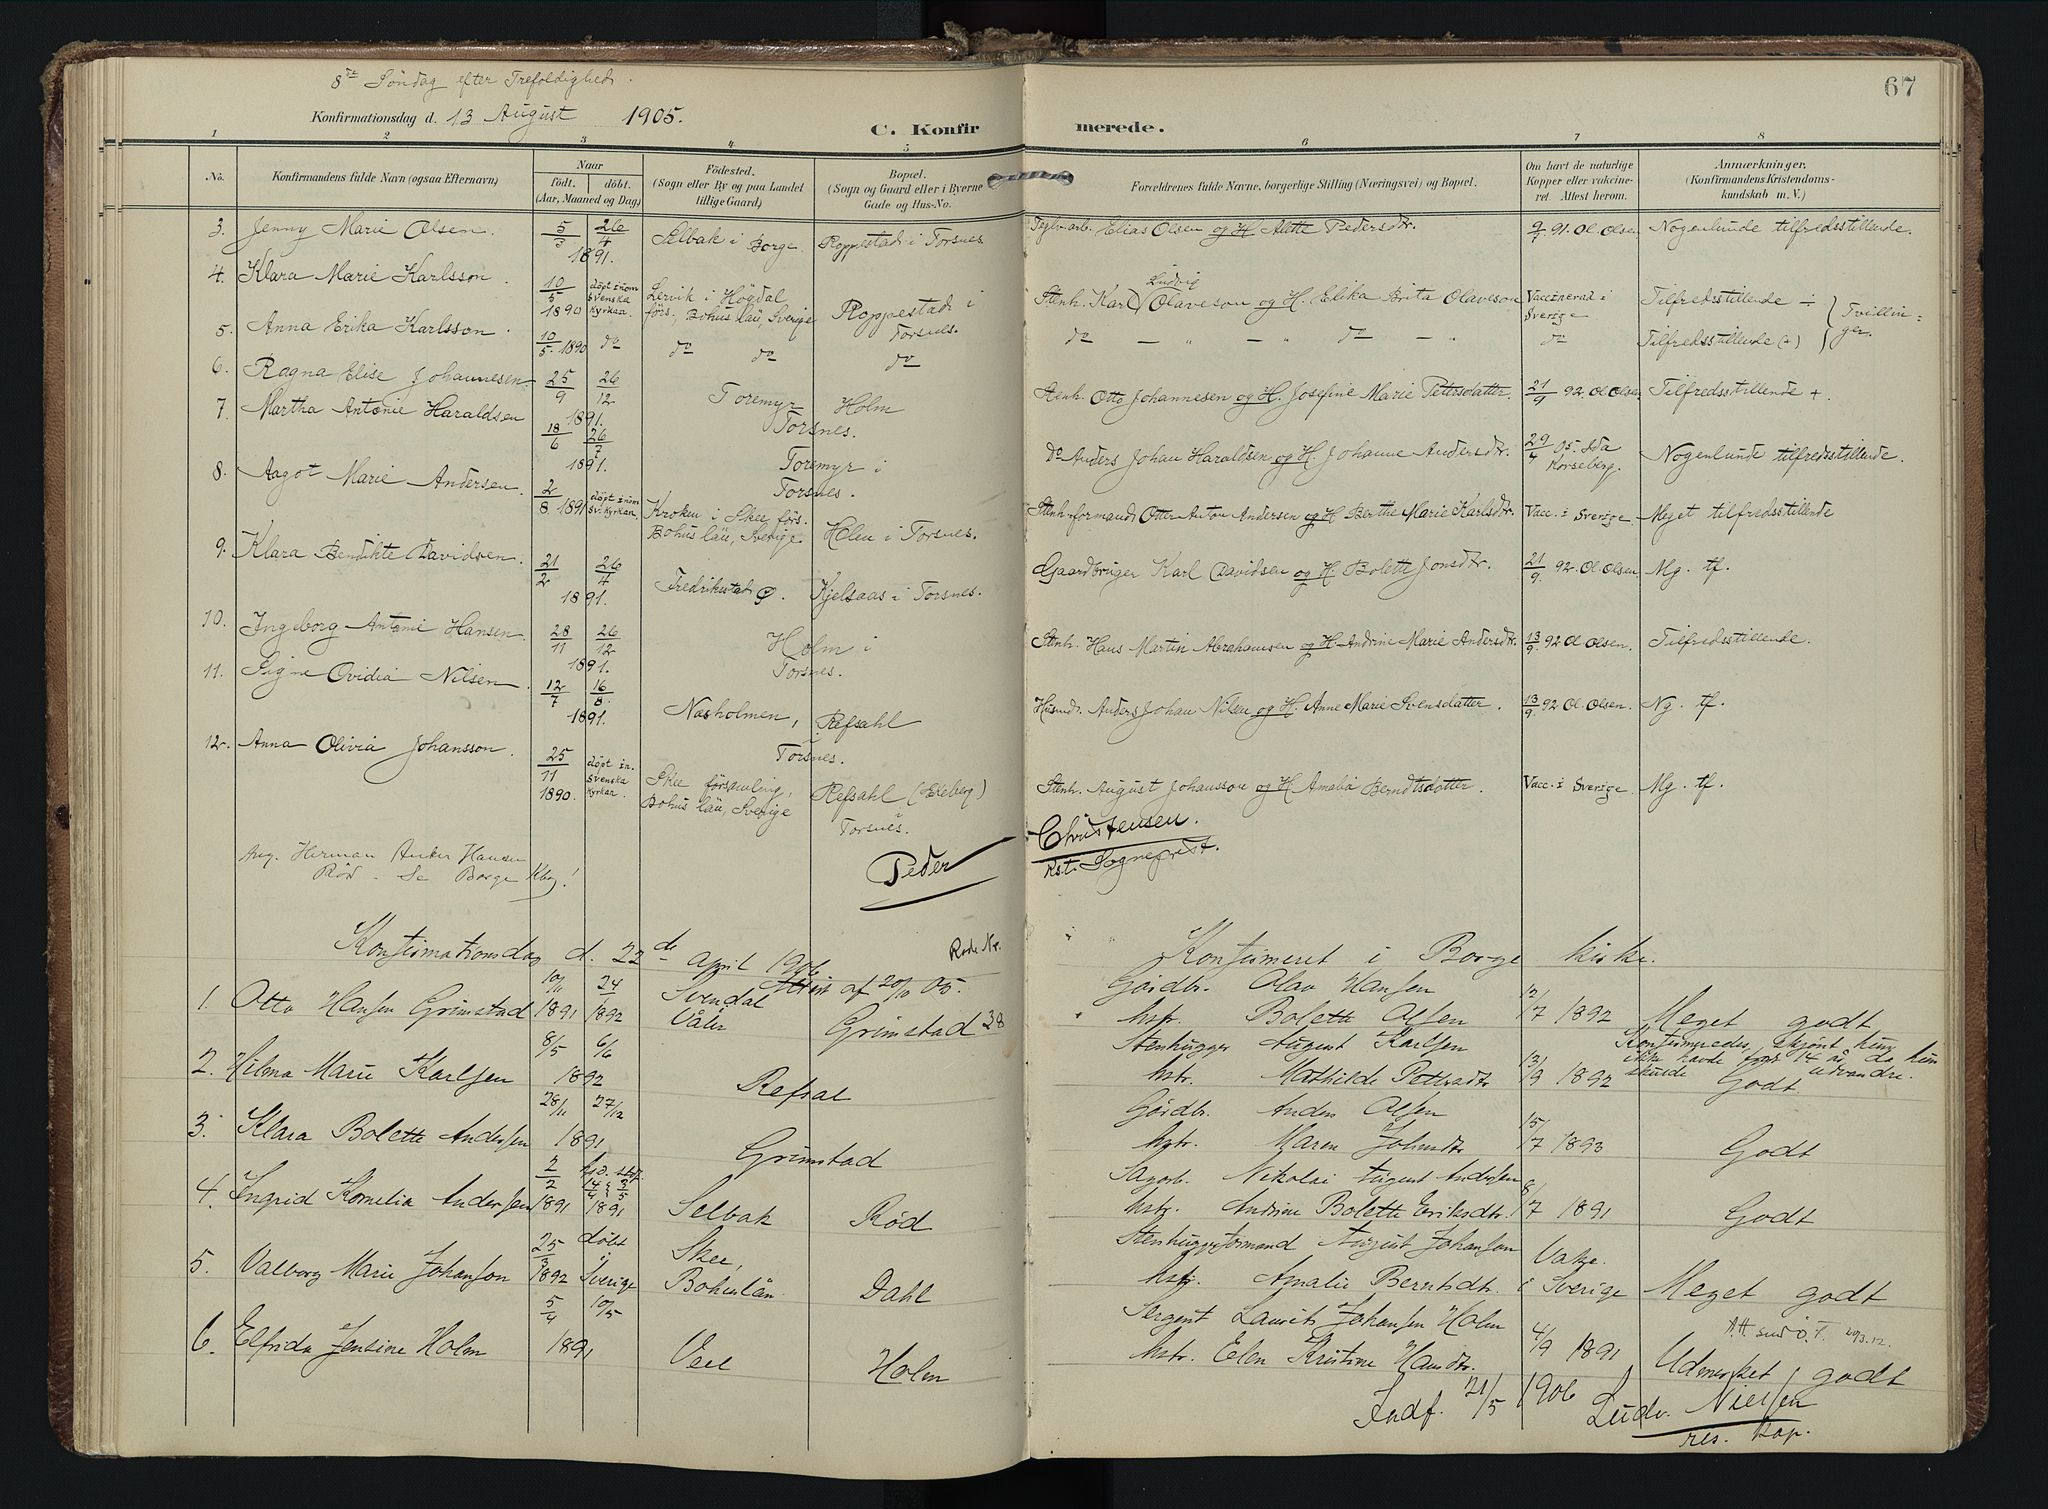 8de Söndag efter Trefoldighed.
67
Konfirmationsdag d. 13 August 1905.
C. Konfirmerede.
1 2 3 4 5 6 7 8
No. Konfirmandens fulde Navn (ogsaa Efternavn) Naar født. døbt. (Aar, Maaned og Dag) Fødested. (Sogn eller By og paa Landet tillige Gaard) Bopæl. (Sogn og Gaard eller i Byerne Gade og Hus-No. Forældrenes fulde Navne, borgerlige Stilling (Næringsvei) og Bopæl. Om havt de naturlige Kopper eller vakcineret. Attest herom. Anmærkninger. (Konfirmandens Kristendomskundskab m. V.)
3. Jenny Marie Olsen. 5/3 26/4 1891. Selbak i Borge. Roppestad i Torsnes Teglv.arb. Elias Olsen og H. Alette Pedersdtr. 9/7 91. Ol. Olsen Nogenlunde tilfredsstillende.
4. Klara Marie Karlsson. 10/5 1890 döpt inom Svenska Kyrkan. Lervik i Högdal förs., Bohus län, Sverige Roppestad i Torsnes. Stenh. Karl Ludvig Olaveson og H. Erika Brita Olaveson Vaccinerad i Sverige Tilfredsstillende ÷ } Tvillinger.
5. Anna Erika Karlsson. 10/5. 1890 do do do do do — „ — „ do — „ do Tilfredsstillende (+)
6. Ragna Elise Johannesen. 25/9 26/12 1891. Toremyr Holm Torsnes. Stenh. Otto Johannesen og H. Josefine Marie Pettersdatter. 21/9 92. Ol Olsen Tilfredsstillende +.
7. Martha Antonie Haraldsen 18/6 26/7 1891. Toremyr i Torsnes. do Anders Johan Haraldsen og H. Johanne Andersdtr. 29/4 05. Ida Korseberg. Nogenlunde tilfredsstillende.
8. Aagot Marie Andersen. 2/8 1891 döpt inom Sv. Kyrkan. Kroken i Skee förs. Bohus län, Sverige. Holm i Torsnes. Stenh.formand Otter Anton Andersen og H Berthe Marie Karlsdtr. Vacc. i Sverige. Meget tilfredsstillende
9. Klara Bendikte Davidsen. 21/2 26/4 1891. Fredrikstad Ø. Kjelsaas i Torsnes. Gaardbruger Karl Davidsen og H. Bolette Jonsdtr. 21/9. 92. Ol Olsen Mg. tf.
10. Ingeborg Antonie Hansen. 28/11 26/12 1891. Holm i Torsnes. Stenh. Hans Martin Abrahamsen og H. Andrine Marie Andersdtr. 13/9. 92 Ol Olsen. Tilfredsstillende.
11. Signe Ovidia Nilsen. 12/7 16/8. 1891. Næsholmen, Refsahl i Torsnes. Husmd. Anders Johan Nilsen og H Anne Marie Svensdatter. 13/9. 92 Ol. Olsen. Ng. tf.
12. Anna Olivia Johansson. 25/11 1890. döpt in. Svenska Kyrkan. Skee församling, Bohus län, Sverige Refsahl i Torsnes. Stenh. August Johansson og H. Amalia Berndtsdatter. Vacc. i Sverige. Mg. tf.
Ang. Herman Anker Hansen
Rød - Se Borge Kbog!
Peder Christensen.
Kst. Sogneprest.
Konfirmationsdag d. 22de April 1906 Konfirmeret i Borge kirke.
Attest af 20/10 05. Rode Nr.
1. Otto Hansen Grimstad 10/11 1891 24/1 1892 Svendal Våler Grimstad 38 Gårdbr. Olav Hansen hstr. Bolette Olsen 12/7 1892 Meget godt
2. Hilma Marie Karlsen 8/5 6/6 1892 Refsal Stenhugger August Karlsen hstr. Mathilde Pettersdtr 13/9 1892 Konfirmeredes, skjønt hun ikke havde fyldt 14 år, da hun skulde udvandre. Godt.
3. Klara Bolette Andersen 28/11 27/12 1891 Grimstad Gårdbr. Anders Olsen hstr. Maren Johnsdtr 15/7 1893 Godt
4. Ingrid Kornelia Andersen 2/2 1891 14/4 3/5 1891 Selbak Rød Sagarb. Nikolai August Andersen hstr. Andrine Bolette Eriksdtr. 8/7 1891 Godt
5. Valborg Marie Johansson 25/3 1892 døbt i Sverige Skee, Bohuslän Dahl Stenhuggerformand August Johansson hstr. Amalie Berntsdtr. Vakc. i Sverige Meget godt
6. Elfrida Jensine Holm 5/4 10/5 1891 Veel Holm Sergent Laurits Johansen Holm hstr. Elen Kristine Hansdtr. 4/9 1891 Udmerket godt
Indf. 21/5 1906 Ludv. Nielsen
res. kap.